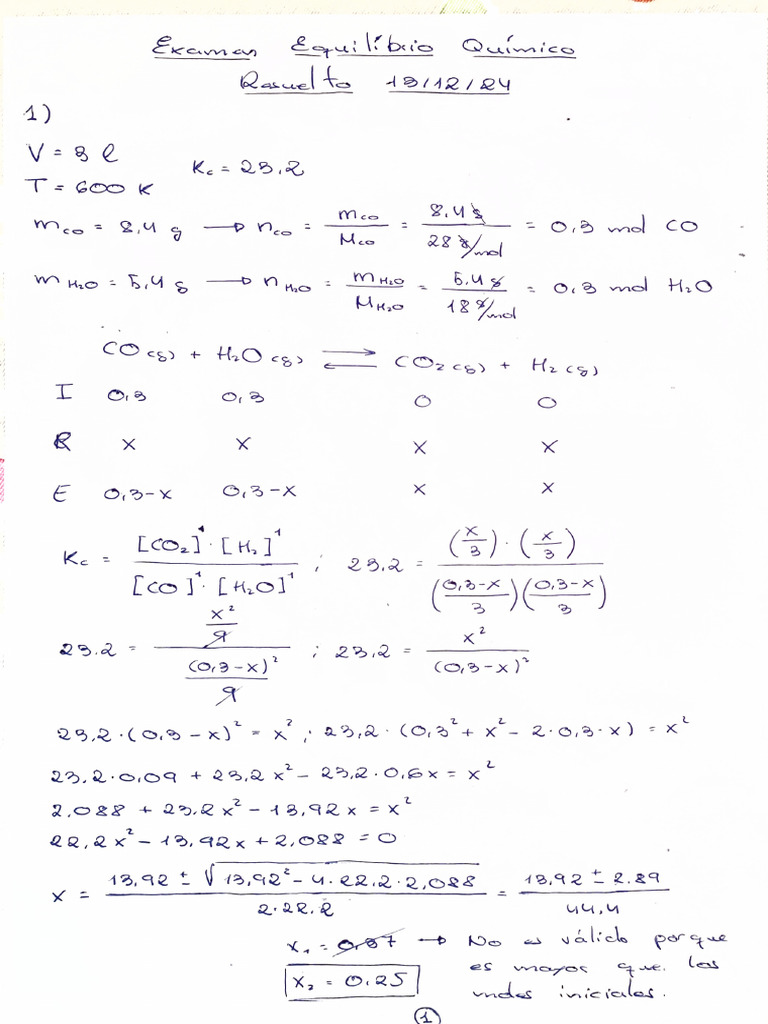 Examen Equilibrio Químico
Resuelto 13/12/24
1)
V = 3 l
Kc = 23,2
T = 600 K
mCO = 8,4 g → nCO = mCO/MCO = 8,4 g/28 g/mol = 0,3 mol CO
mH₂O = 5,4 g → nH₂O = mH₂O/MH₂O = 5,4 g/18 g/mol = 0,3 mol H₂O
CO(g) + H₂O(g) ⇄ CO₂(g) + H₂(g)
I 0,3 0,3 0 0
R x x x x
E 0,3-x 0,3-x x x
Kc = [CO₂]¹·[H₂]¹/[CO]¹·[H₂O]¹ ; 23,2 = (x/3)·(x/3)/((0,3-x)/3)((0,3-x)/3)
23.2 = (x²/9)/((0,3-x)²/9) ; 23,2 = x²/(0,3-x)²
23,2·(0,3-x)² = x² ; 23,2·(0,3²+x²-2·0,3·x) = x²
23.2·0,09 + 23,2x² - 23,2·0,6x = x²
2,088 + 23.2x² - 13,92x = x²
22,2x² - 13,92x + 2,088 = 0
x = (13,92 ± √(13,92² - 4·22,2·2,088))/(2·22.2) = (13,92 ± 2.89)/44,4
x₁ = 0,37 → No es válido porque
es mayor que los
moles iniciales.
x₂ = 0.25
1